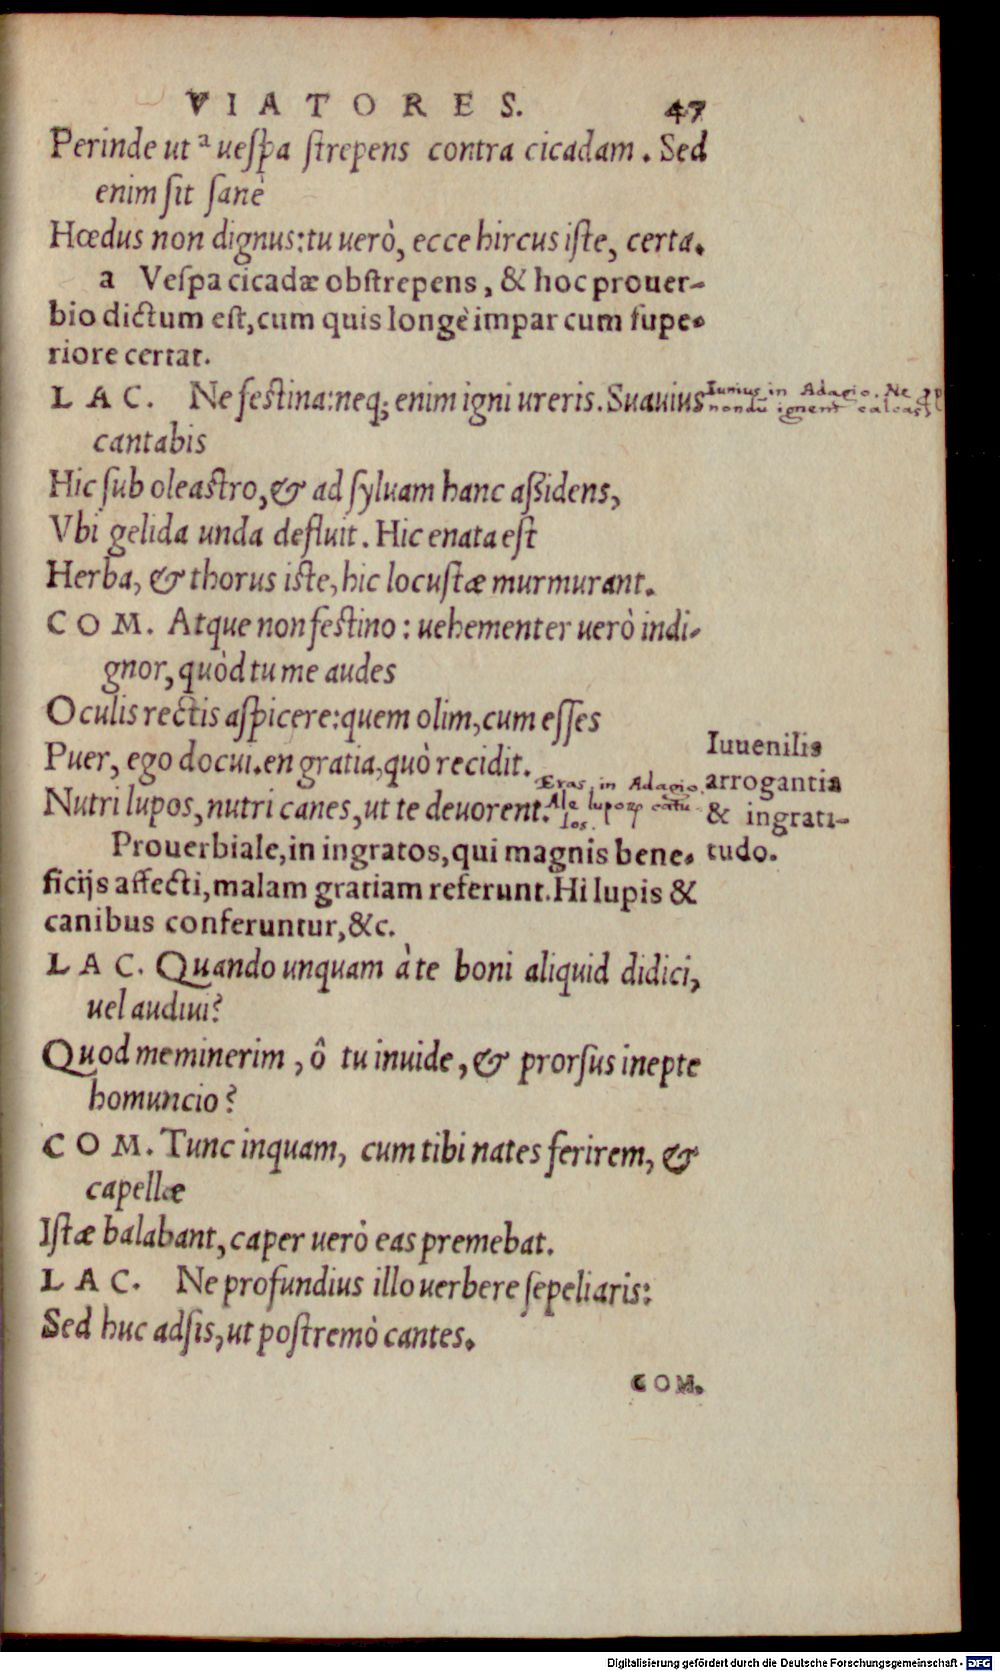 VIATORES. 47
Perinde ut ª uespa strepens contra cicadam. Sed
enim sit sanè
Hœdus non dignus: tu uerò, ecce hircus iste, certa.
a Vespa cicadæ obstrepens, & hoc prouer-
bio dictum est, cum quis longè impar cum supe-
riore certat.
LAC. Ne festina: neq; enim igni ureris. Suauius
Iunius in Adagio. Ne
nondū ignem calcas
cantabis
Hic sub oleastro, & ad syluam hanc assidens,
Vbi gelida unda defluit. Hic enata est
Herba, & thorus iste, hic locustæ murmurant.
COM. Atque non festino: uehementer uerò indi-
gnor, quòd tu me audes
Oculis rectis aspicere: quem olim, cum esses
Puer, ego docui. en gratia, quò recidit.
Nutri lupos, nutri canes, ut te deuorent.
Eras. in Adagio.
Ale luporꝝ catu
los.
Iuuenilis
arrogantia
& ingrati-
tudo.
Prouerbiale, in ingratos, qui magnis bene-
ficijs affecti, malam gratiam referunt. Hi lupis &
canibus conferuntur, &c.
LAC. Quando unquam à te boni aliquid didici,
uel audiui?
Quod meminerim, ô tu inuide, & prorsus inepte
homuncio?
COM. Tunc inquam, cum tibi nates ferirem, &
capellæ
Istæ balabant, caper uerò eas premebat.
LAC. Ne profundius illo uerbere sepeliaris:
Sed huc adsis, ut postremò cantes.
COM.
Digitalisierung gefördert durch die Deutsche Forschungsgemeinschaft - DFG